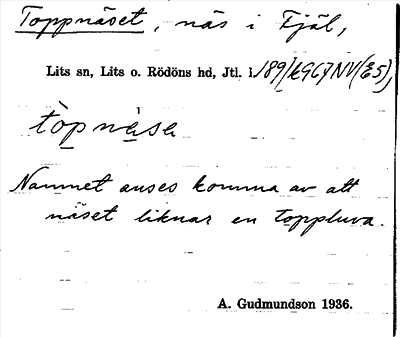 Toppnäset, näs i Fjäl,
Lits sn, Lits o. Rödöns hd, Jtl. i 189/kGG7NV(E5),
tòpnèse
Namnet anses komma av att
näset liknar en toppluva.
A. Gudmundson 1936.